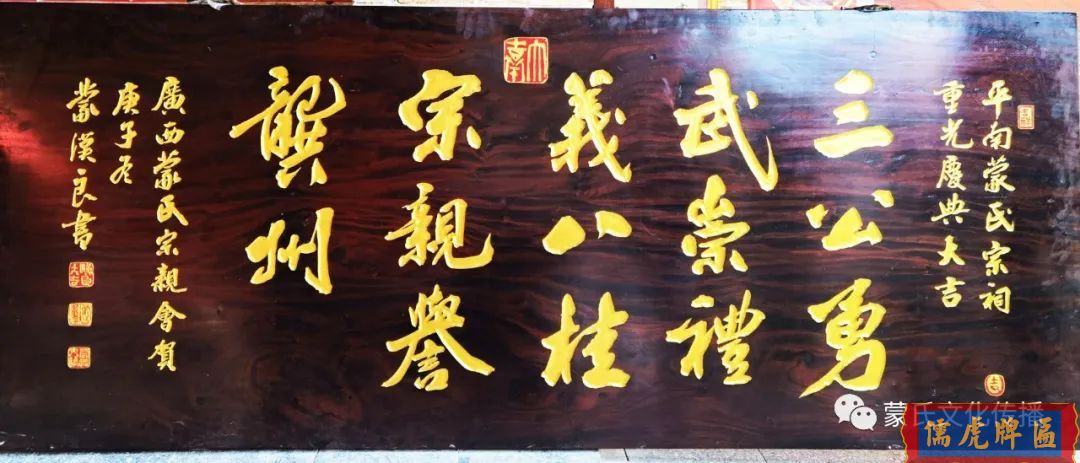 平南蒙氏宗祠
重光慶典大吉
三公勇
武崇禮
義八桂
宗親譽
龔州
廣西蒙氏宗親會賀
庚子冬
蒙漢良書
蒙氏文化传播
儒虎牌匾